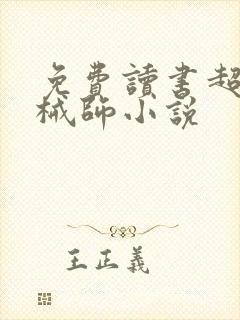 免費讀書超
械師小說
王正義